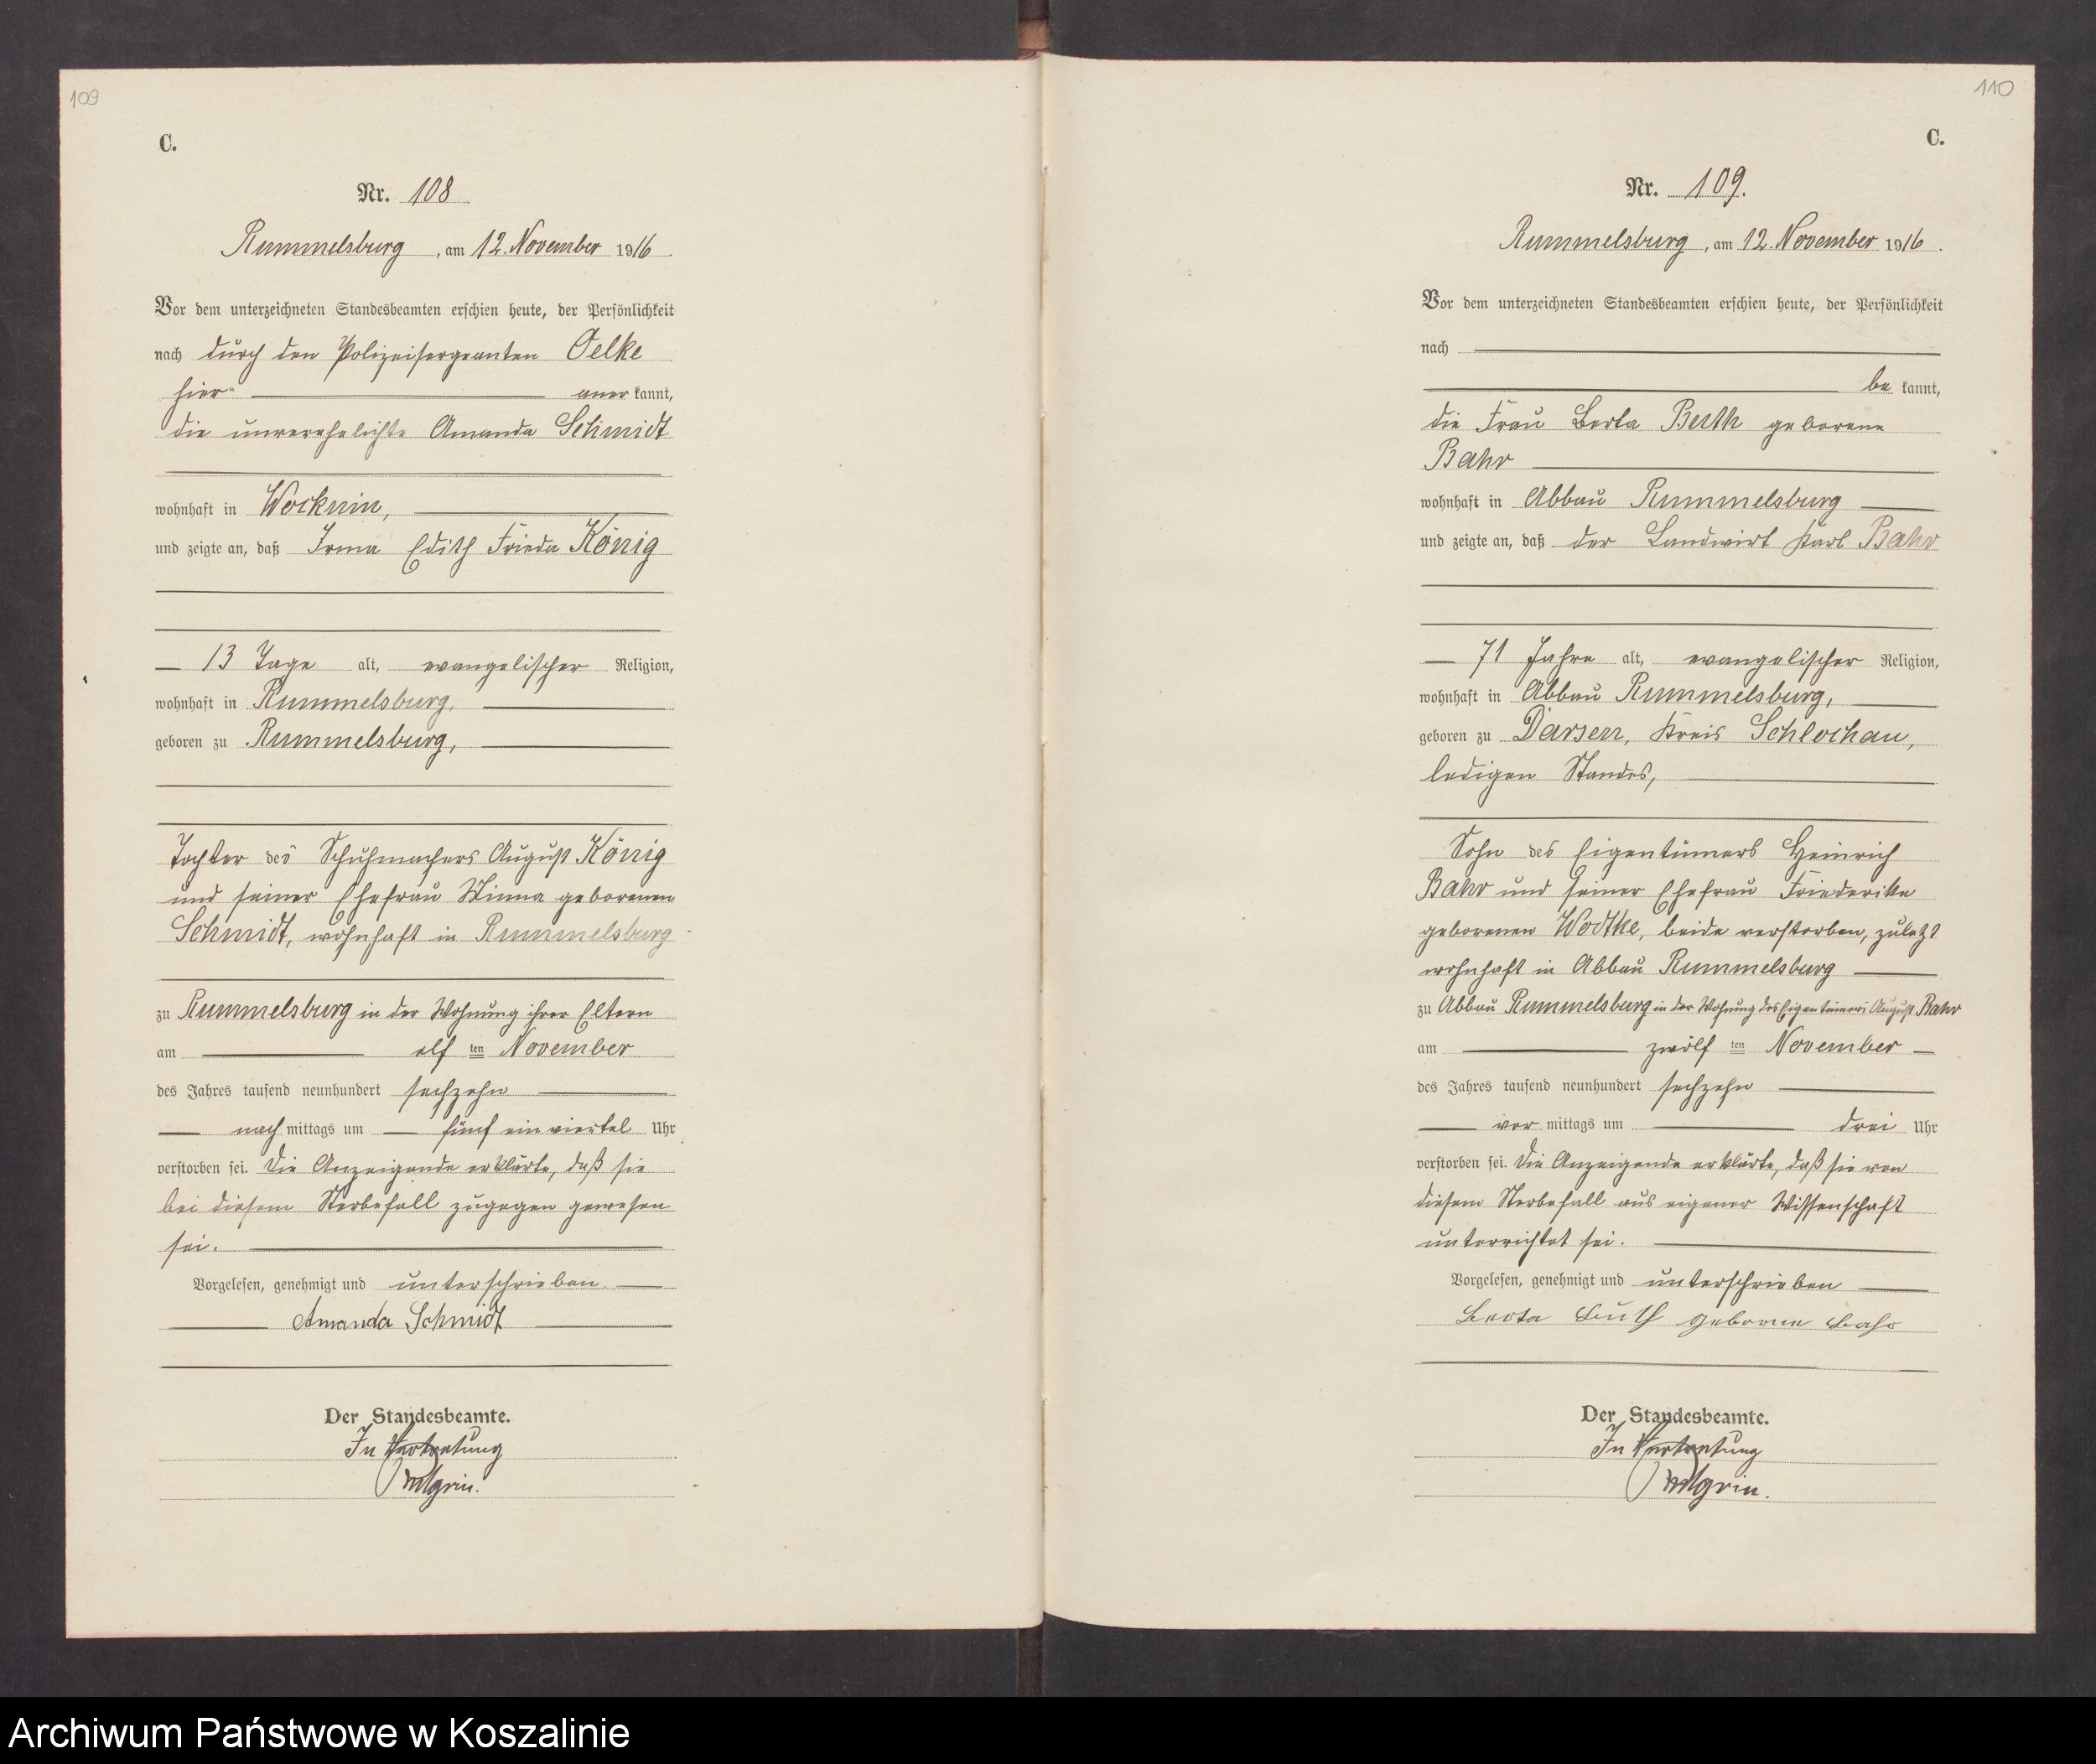 109
C.
Nr. 108
Rummelsburg, am 12. November 1916.
Vor dem unterzeichneten Standesbeamten erschien heute, der Persönlichkeit
nach durch den Polizeisergeanten Oelke
hier anerkannt,
die unverehelichte Amanda Schmidt
wohnhaft in Wocknin,
und zeigte an, daß Irma Edith Frieda König
13 Tage alt, evangelischer Religion,
wohnhaft in Rummelsburg,
geboren zu Rummelsburg,
Tochter des Schuhmachers August König
und seiner Ehefrau Minna geborenen
Schmidt, wohnhaft in Rummelsburg
zu Rummelsburg in der Wohnung ihrer Eltern
am elf ten November
des Jahres tausend neunhundert sechzehn
nachmittags um fünf ein viertel Uhr
verstorben sei. Die Anzeigende erklärte, daß sie
bei diesem Sterbefall zugegen gewesen
sei.
Vorgelesen, genehmigt und unterschrieben.
Amanda Schmidt
Der Standesbeamte.
In Vertretung
110
C.
Nr. 109.
Rummelsburg, am 12. November 1916.
Vor dem unterzeichneten Standesbeamten erschien heute, der Persönlichkeit
nach
bekannt,
die Frau Berta geborene
Bahr
wohnhaft in Abbau Rummelsburg
und zeigte an, daß der Landwirt Karl Bahr
71 Jahre alt, evangelischer Religion,
wohnhaft in Abbau Rummelsburg,
geboren zu Darsen, Kreis Schlochau,
ledigen Standes,
Sohn des Eigentümers Heinrich
Bahr und seiner Ehefrau Friederike
geborenen Wodtke, beide verstorben, zuletzt
wohnhaft in Abbau Rummelsburg
zu Abbau Rummelsburg in der Wohnung des Eigentümers August Bahr
am zwölf ten November
des Jahres tausend neunhundert sechzehn
vormittags um drei Uhr
verstorben sei. Die Anzeigende erklärte, daß sie von
diesem Sterbefall aus eigener Wissenschaft
unterrichtet sei.
Vorgelesen, genehmigt und unterschrieben
Berta geborne Bahr
Der Standesbeamte.
In Vertretung
Archiwum Państwowe w Koszalinie